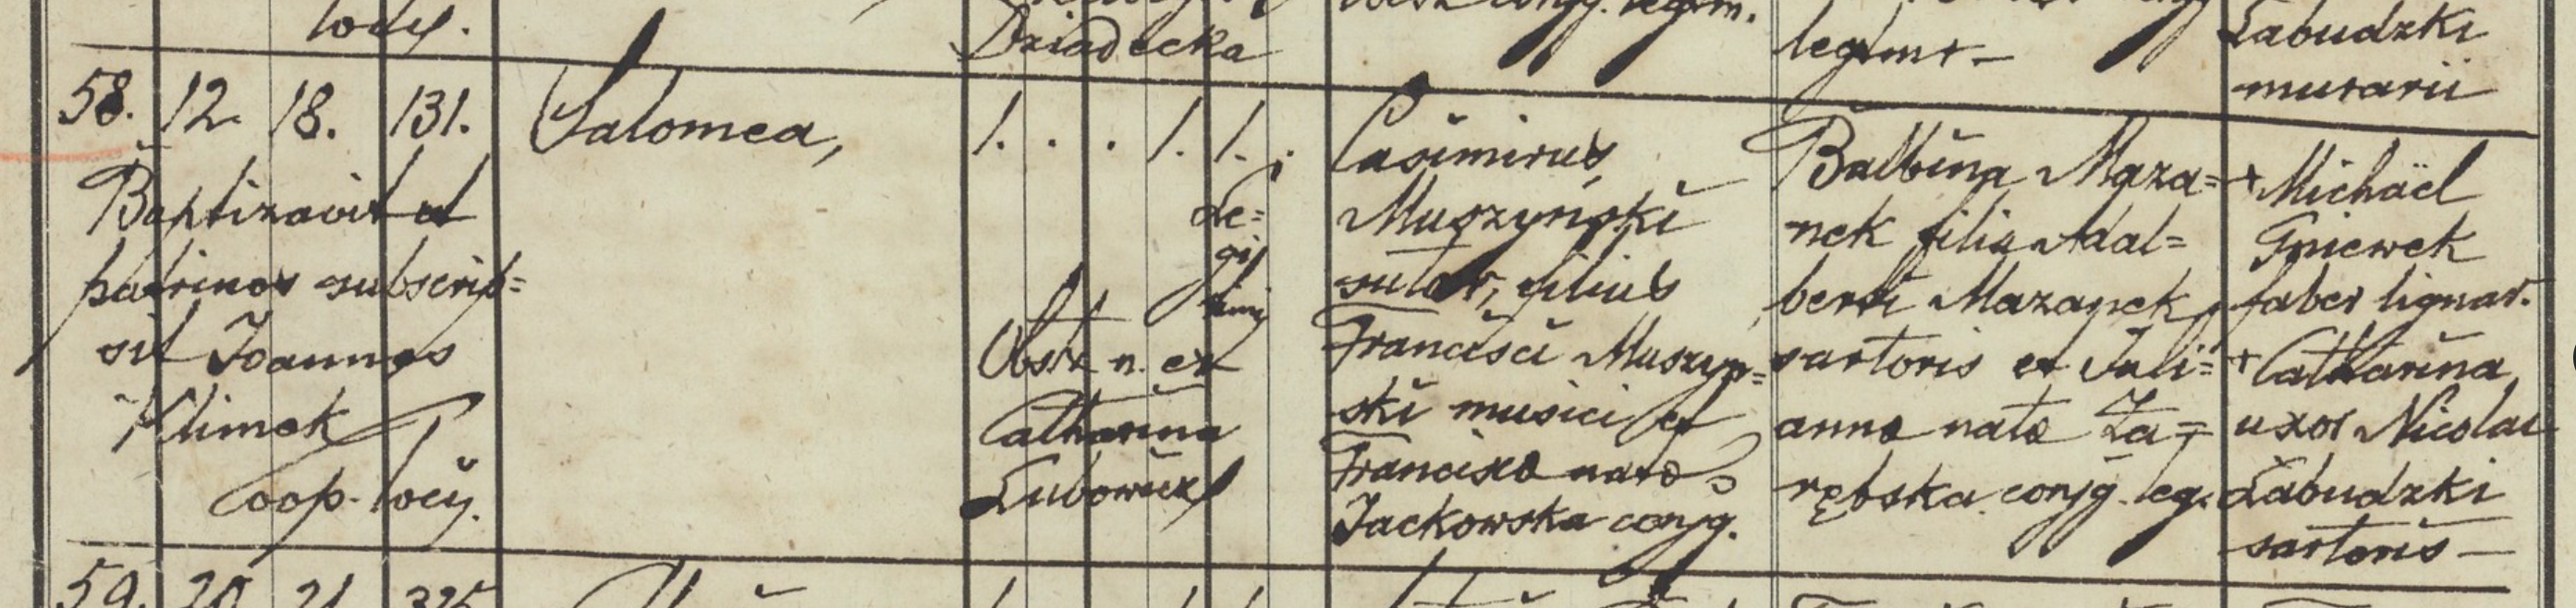 locy.
Dziadecka
legtmt-
Łabudzki
murarii
58. 12. 18. 131. Salomea, 1. . . 1. 1.
Baptizavit et
patrinos subscrip=
sit Joannes
Klimek
Coop. locy.
Le=
gi
timi
Obstr. n. ex
Catharina
Lubowicz
Casimirus
Muszyński
sutor, filius
Francisci Muszyn=
ski musici et
Francisca nata
Jackowska conjg.
Balbina Maza=
nek filia Adal=
berti Mazanek,
sartoris et Juli=
anna nata Za=
rębska conjg. leg.
+ Michaël
Gniewek
faber lignar.
+ Catharina
uxor Nicolai
Łabudzki
sartoris-
59. 20 21 325